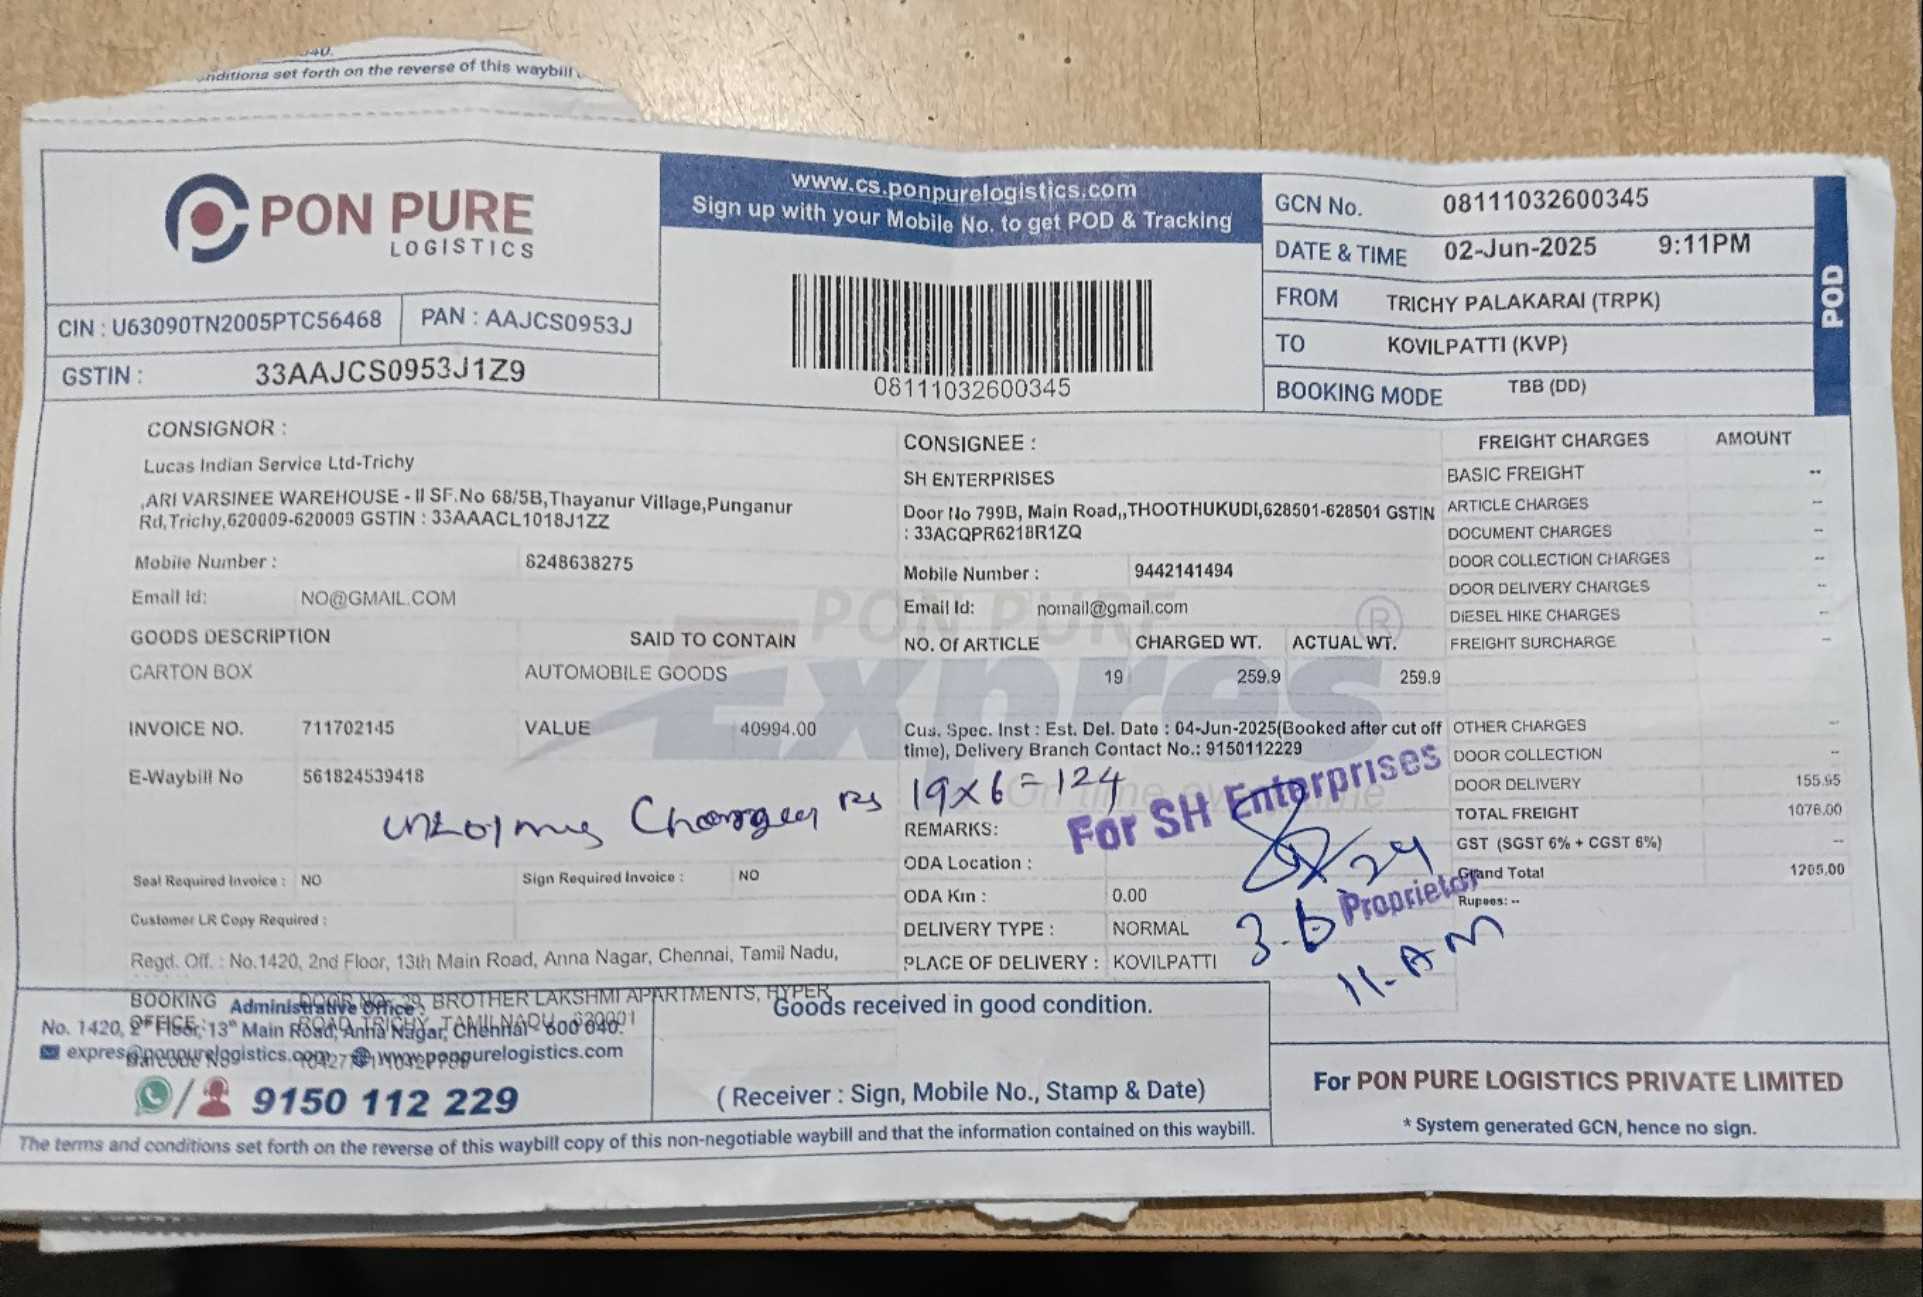 040.
onditions set forth on the reverse of this waybill
PON PURE
LOGISTICS
CIN : U63090TN2005PTC56468
PAN : AAJCS0953J
GSTIN : 33AAJCS0953J1Z9
www.cs.ponpurelogistics.com
Sign up with your Mobile No. to get POD & Tracking
08111032600345
GCN No. 08111032600345
DATE & TIME 02-Jun-2025 9:11PM
FROM TRICHY PALAKARAI (TRPK)
TO KOVILPATTI (KVP)
BOOKING MODE TBB (DD)
POD
CONSIGNOR :
Lucas Indian Service Ltd-Trichy
,ARI VARSINEE WAREHOUSE - II SF.No 68/5B,Thayanur Village,Punganur
Rd,Trichy,620009-620009 GSTIN : 33AAACL1018J1ZZ
Mobile Number : 8248638275
Email Id: NO@GMAIL.COM
GOODS DESCRIPTION SAID TO CONTAIN
CARTON BOX AUTOMOBILE GOODS
INVOICE NO. 711702145 VALUE 40994.00
E-Waybill No 561824539418
CONSIGNEE :
SH ENTERPRISES
Door No 799B, Main Road,,THOOTHUKUDI,628501-628501 GSTIN
: 33ACQPR6218R1ZQ
Mobile Number : 9442141494
Email Id: nomail@gmail.com
NO. Of ARTICLE CHARGED WT. ACTUAL WT.
19 259.9 259.9
Cus. Spec. Inst : Est. Del. Date : 04-Jun-2025(Booked after cut off
time), Delivery Branch Contact No.: 9150112229
PON PURE
Expres
®
FREIGHT CHARGES AMOUNT
BASIC FREIGHT --
ARTICLE CHARGES --
DOCUMENT CHARGES --
DOOR COLLECTION CHARGES --
DOOR DELIVERY CHARGES --
DIESEL HIKE CHARGES --
FREIGHT SURCHARGE --
OTHER CHARGES --
DOOR COLLECTION --
DOOR DELIVERY 155.95
TOTAL FREIGHT 1076.00
GST (SGST 6% + CGST 6%) --
Grand Total 1205.00
Rupees: --
Rs 19x6=124
For SH Enterprises
Proprietor
3.6
11.AM
REMARKS:
ODA Location :
ODA Km : 0.00
DELIVERY TYPE : NORMAL
PLACE OF DELIVERY : KOVILPATTI
Seal Required Invoice : NO Sign Required Invoice : NO
Customer LR Copy Required :
Regd. Off. : No.1420, 2nd Floor, 13th Main Road, Anna Nagar, Chennai, Tamil Nadu,
BOOKING OFFICE : DOOR NO : 29, BROTHER LAKSHMI APARTMENTS, HYPER
ROAD, TRICHY, TAMILNADU - 620001
Administrative Office :
No. 1420, 2nd Floor, 13th Main Road, Anna Nagar, Chennai - 600 040.
expres@ponpurelogistics.com www.ponpurelogistics.com
9150 112 229
Goods received in good condition.
( Receiver : Sign, Mobile No., Stamp & Date)
For PON PURE LOGISTICS PRIVATE LIMITED
* System generated GCN, hence no sign.
The terms and conditions set forth on the reverse of this waybill copy of this non-negotiable waybill and that the information contained on this waybill.